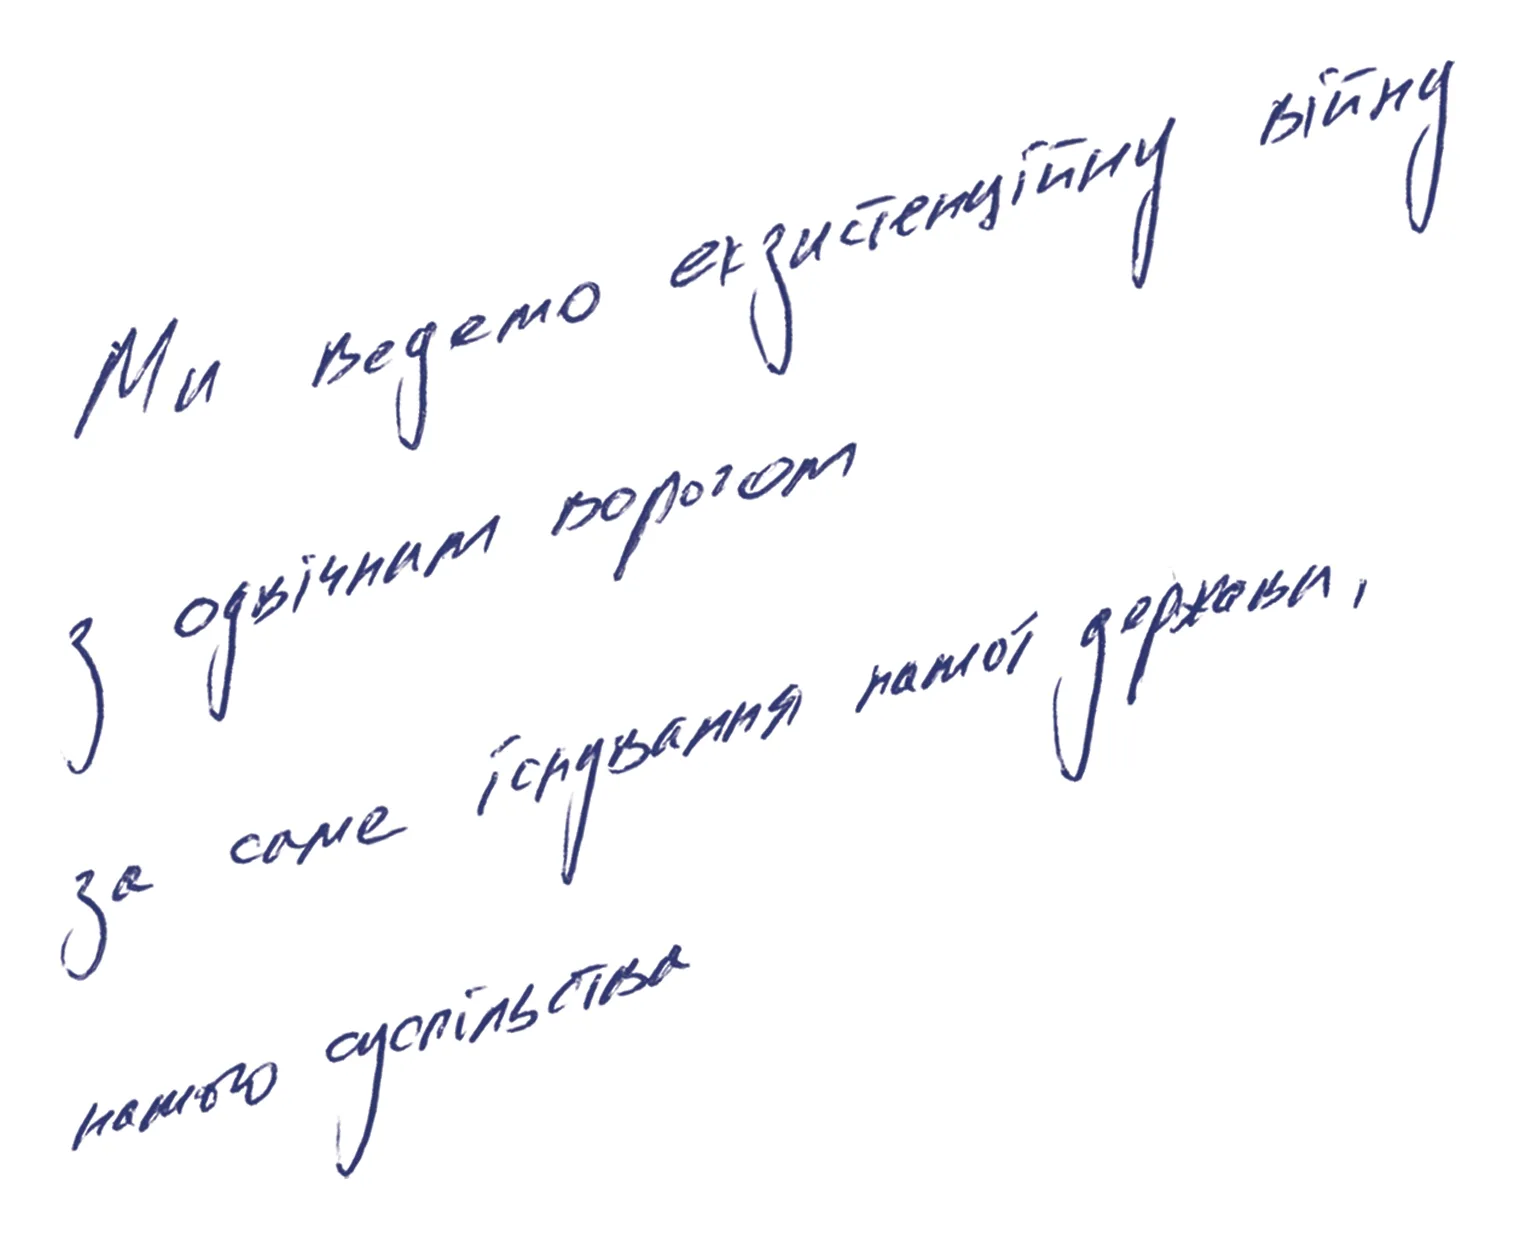 Ми ведемо екзистенційну війну
з одвічним ворогом
за саме існування нашої держави,
нашого суспільства